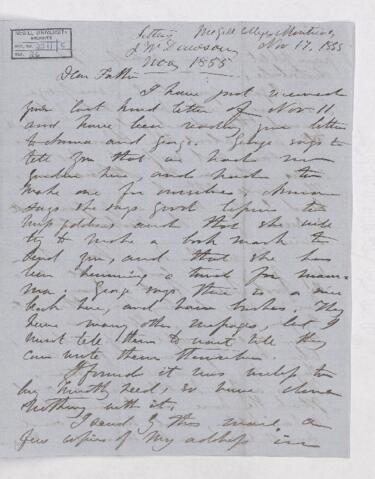 McGILL UNIVERSITY
ARCHIVES
ACC. NO. 2211/5
REF. 26
Letters
J W Dawson
Nov 1855
McGill College Montreal
Nov 17, 1855
Dear Father
I have just received
your last kind letter of Nov 11,
and have been reading your letters
to Anna and George. George says to
tell you that we had no
garden here, and had to
make one for ourselves. Anna
says she says good
and that she will
try to make a book mark to
send you, and that she has
been hemming a towel for mam-
ma. George says there is a nice
here, and have They
have many other messages, but I
must tell them to wait till they
can write them themselves.
I found it was
so have done
nothing with it.
I send by this mail a
few copies of my address in